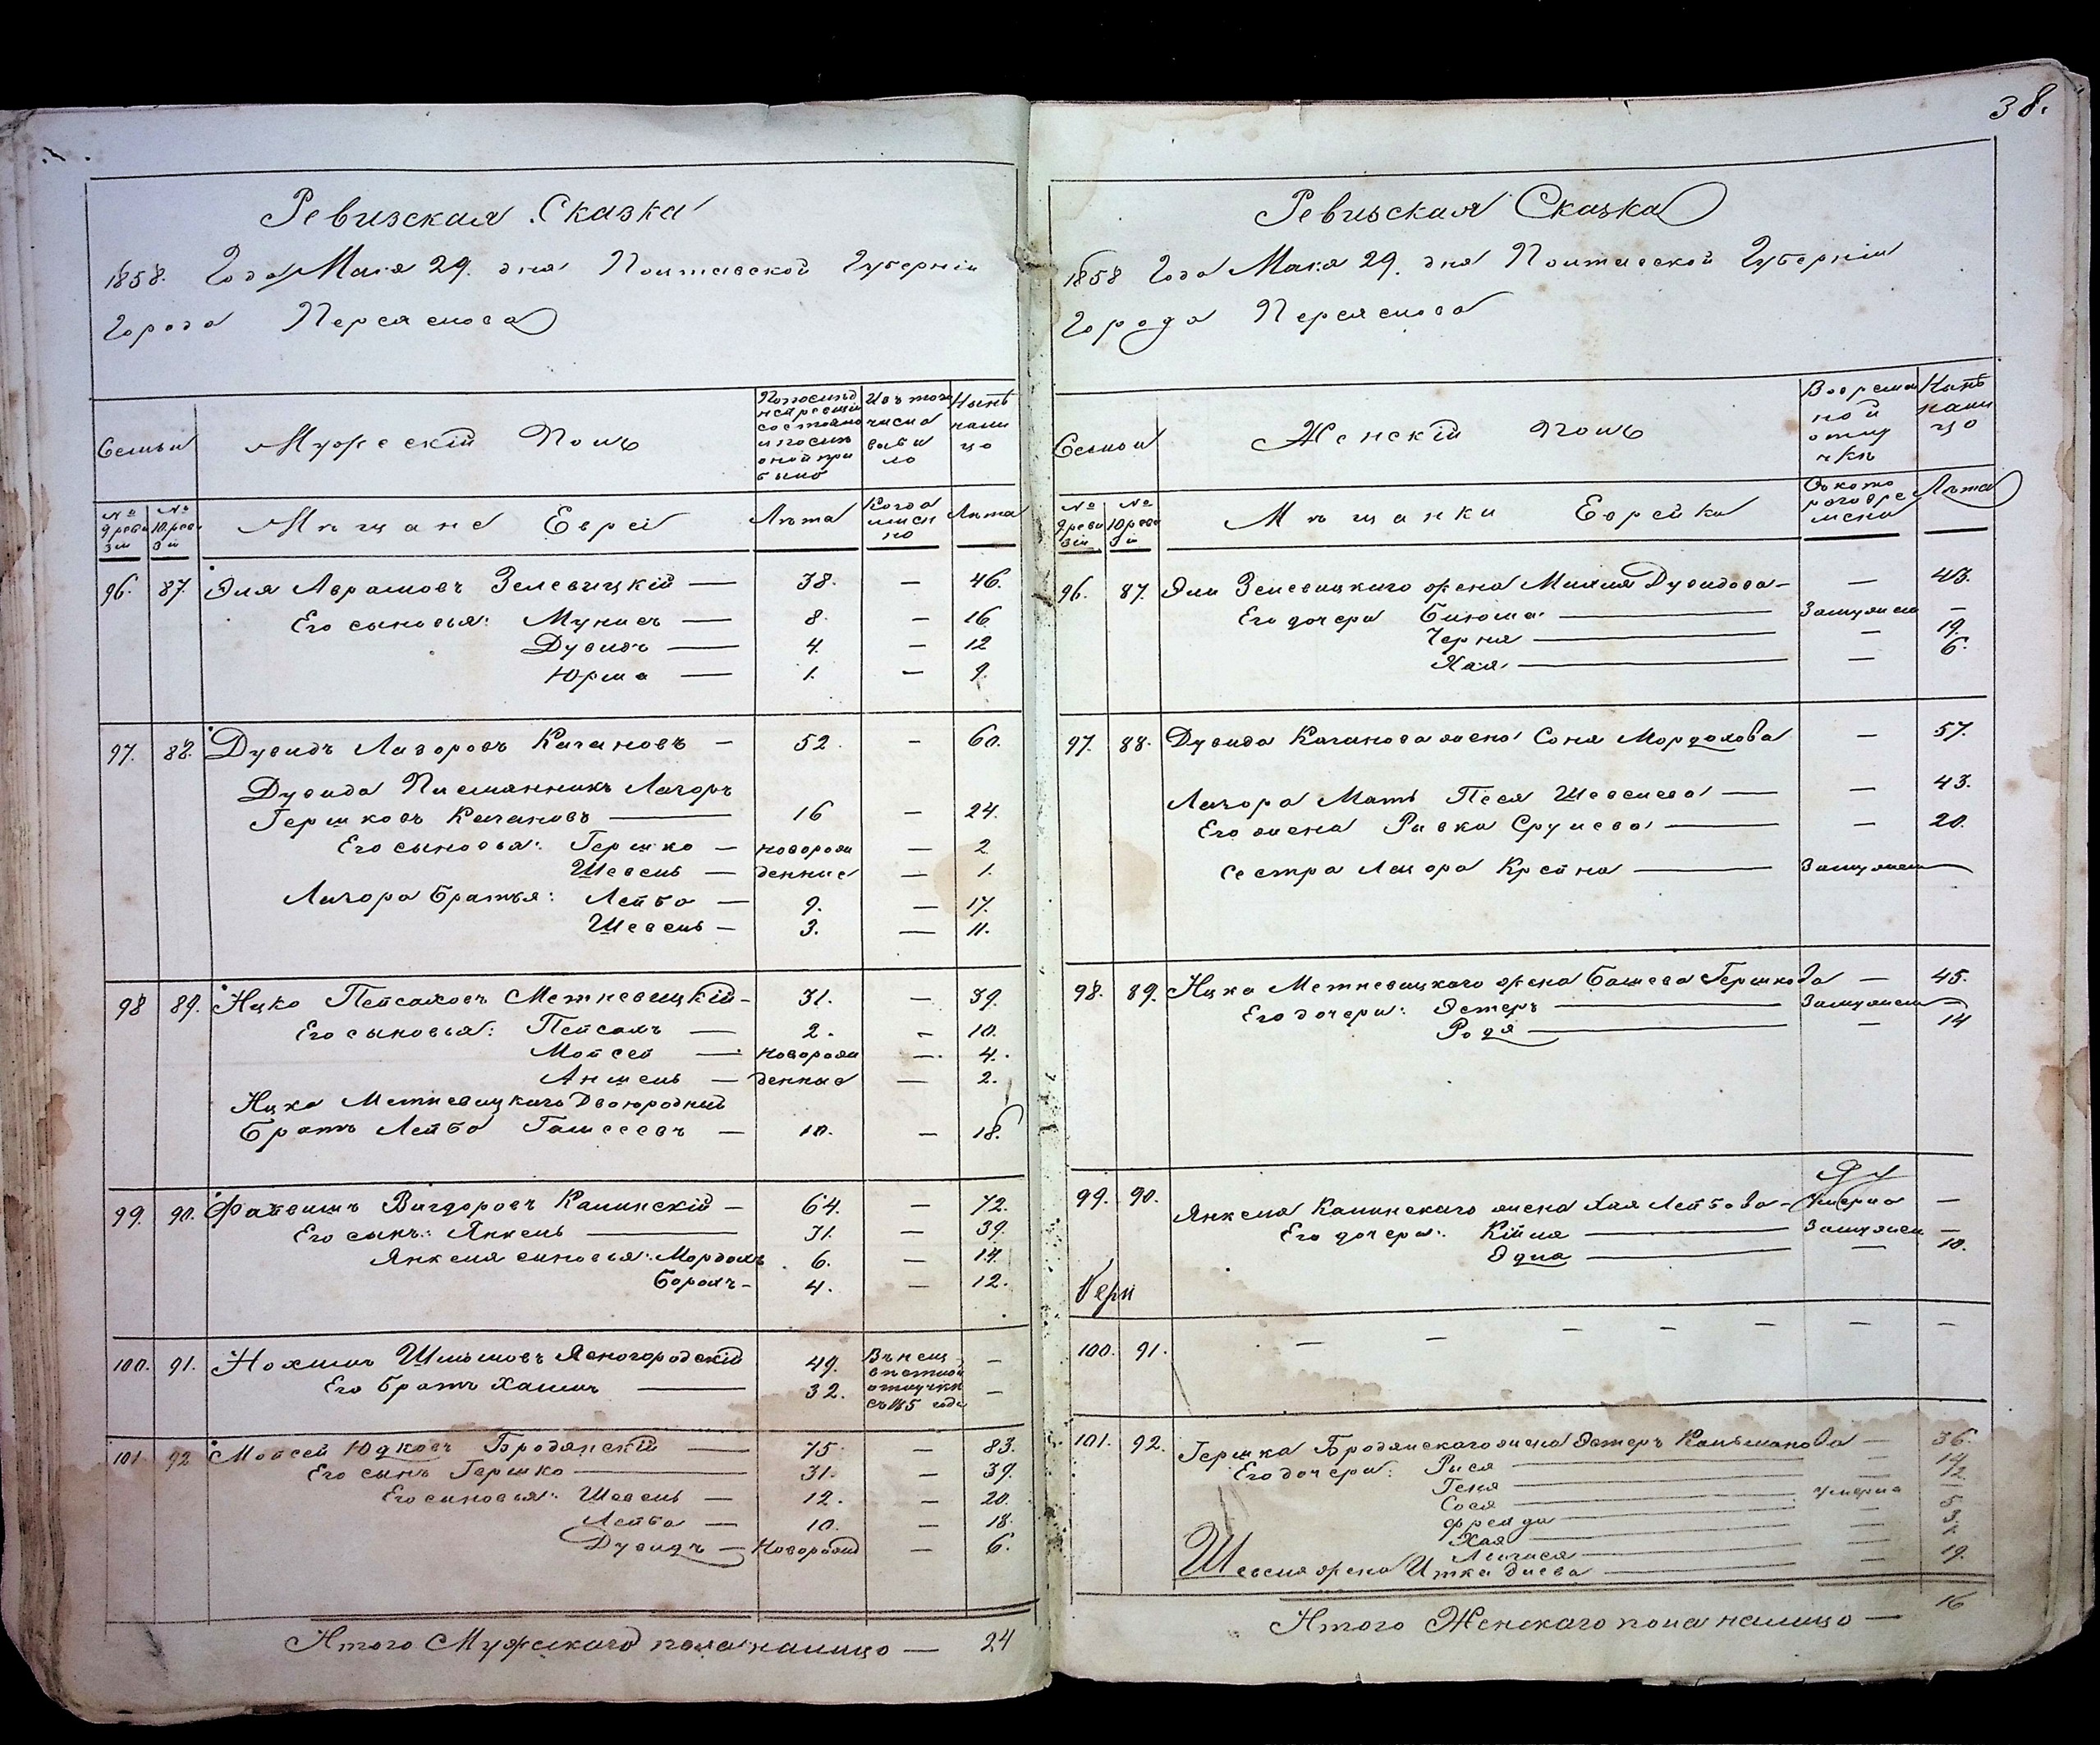 38.
Ревизская Сказка
1858. Года Мая 29. дня Полтавской Губерніи
Города Переяслова
Семьи
Мужескій Полъ
По последней ревизіи состояло и после оной прибыло
Изъ того числа выбыло
Нынѣ на лицо
№ 9 ревизіи
№ 10 ревизіи
Мѣщане Евреи
Лѣта
Когда именно
Лѣта
96. 87. Эля Аврамовъ Зелевицкій — 38. — 46.
Его сыновья: Мунисъ — 8. — 16
Дувидъ — 4. — 12
Юрма — 1. — 9.
97. 88. Дувидъ Лазоровъ Кагановъ — 52. — 60.
Дувида Племянникъ Лазоръ
Гершковъ Кагановъ — 16 — 24.
Его сыновья: Гершко — новорож — 2.
Шевель — денные — 1.
Лазора братья: Лейба — 9. — 17.
Шевель — 3. — 11.
98 89. Ицко Пейсаховъ Метневицкій — 31. — 39.
Его сыновья: Пейсахъ — 2. — 10.
Мойсей — новорож — 4.
Аншель — денные — 2.
Ицка Метневицкаго Двоюродный
братъ Лейба — 10. — 18.
99. 90. Файвишъ Вигдоровъ Калинскій — 64. — 72.
Его сынъ: Янкель — 31. — 39.
Янкеля сыновья: Мордохъ 6. — 14.
Борохъ — 4. — 12.
100. 91. Нохимъ Шлiомовъ Ясногородскій 49. Въ неиз —
Его братъ Хаимъ — 32. вестной отлучкѣ —
101 92 Мойсей Юдковъ Бродянскій — 75. — 83.
Его сынъ Гершко — 31. — 39.
Его сыновья: Шевель — 12. — 20.
Лейба — 10. — 18.
Дувидъ — новорожд — 6.
Итого Мужескаго пола налицо — 24
Ревизская Сказка
1858 Года Мая 29. дня Полтавской Губерніи
Города Переяслова
Семьи
Женскій полъ
Во временной отлучкѣ
Нынѣ на лицо
№ 9 ревизіи
№ 10 ревизіи
Мѣщанки Еврейки
Съ котораго времени
Лѣта
96. 87. Эли Зелевицкаго жена Малия Дувидова — — 43.
Его дочери Блюма — Замужем —
Черня — — 19.
Хая — — 6.
97. 88. Дувида Каганова жена Соня Мордохова — 57.
Лазора Мать Песя Шевелева — — 43.
Его жена Ривка Срулева — — 20.
Сестра Лазора Крейна — Замужем —
98. 89. Ицка Метневицкаго жена Башева Гершкова — 45.
Его дочери: Эстеръ — Замужем —
Родя — — 14
99. 90. Янкеля Калинскаго жена Хая Лейбова — Умерла —
Его дочери: Кійля — Замужем —
Эдна — — 10.
100. 91. — — — — — — —
101. 92. Гершка Бродянскаго жена Эстеръ Кальманова — 36.
Его дочери: Рыся — — 14
Геня — — 12
Сося — умерла —
Фрейда — — 5
Хая — — 3.
— — 1.
Шевеля жена Итка — — 19.
Итого Женскаго пола налицо — 16